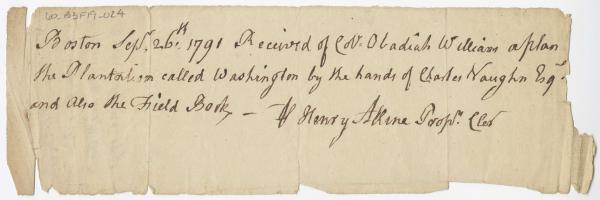 60_B3F19_024
Boston Sepr. 26th. 1791 Received of Col. Obadiah Williams a plan
the Plantation called Washington by the hands of Charles Vaughn Esqr.
and Also the Field Book — Henry Alline Propr. Cler